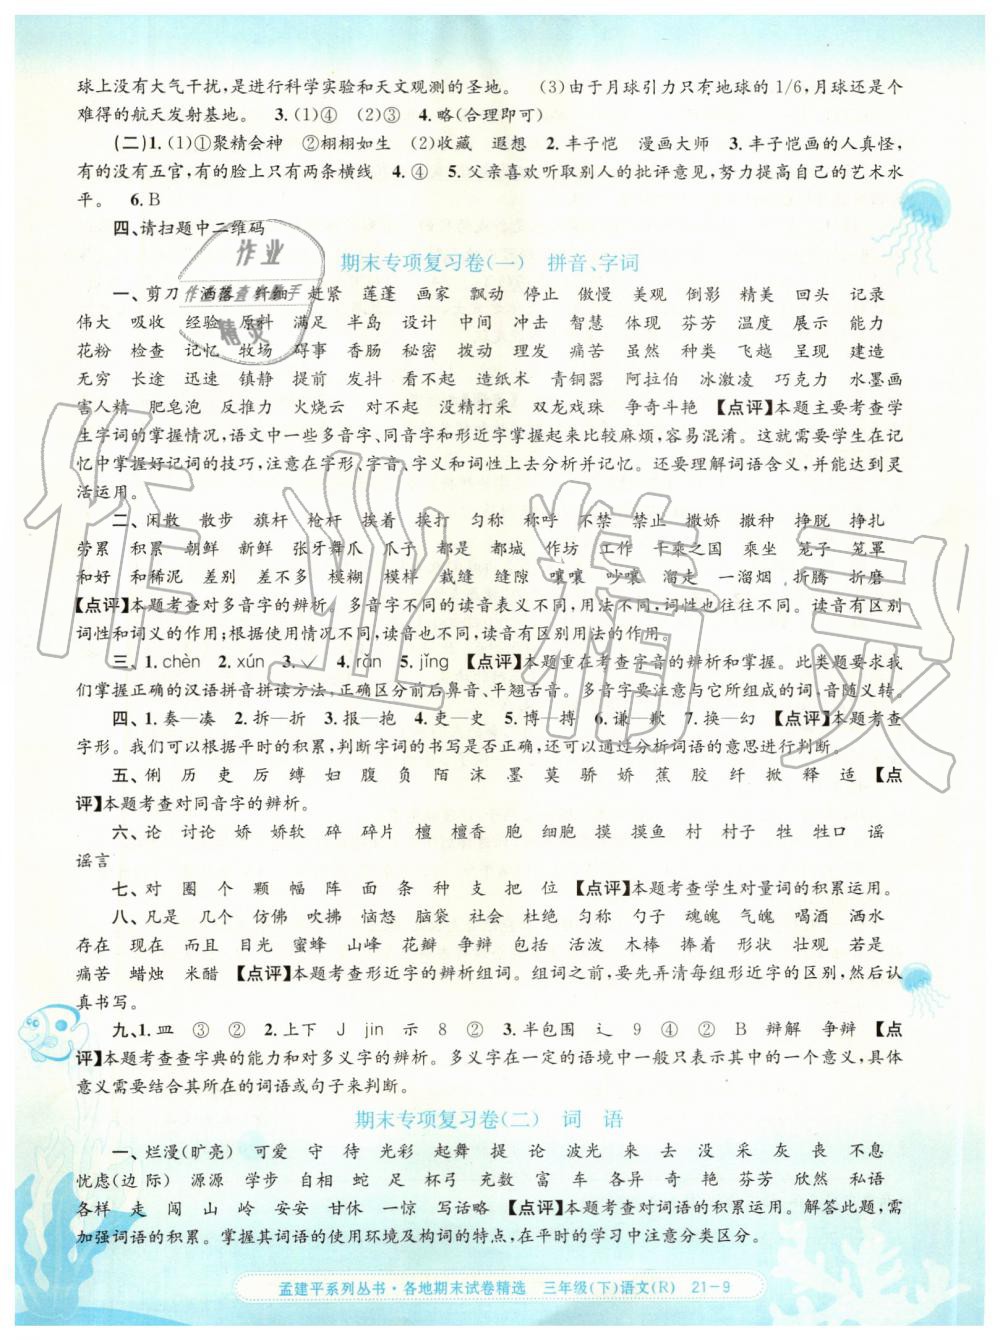 球上没有大气干扰,是进行科学实验和天文观测的圣地。 (3)由于月球引力只有地球的1/6,月球还是个
难得的航天发射基地。 3.(1)④ (2)③ 4.略(合理即可)
(二)1.(1)①聚精会神 ②栩栩如生 (2)收藏 遐想 2.丰子恺 漫画大师 3.丰子恺画的人真怪,
有的没有五官,有的脸上只有两条横线 4.④ 5.父亲喜欢听取别人的批评意见,努力提高自己的艺术水
平。 6.B
四、请扫题中二维码
期末专项复习卷(一) 拼音、字词
一、剪刀 洒落 纤细 赶紧 莲蓬 画家 飘动 停止 傲慢 美观 倒影 精美 回头 记录
伟大 吸收 经验 原料 满足 半岛 设计 中间 冲击 智慧 体现 芬芳 温度 展示 能力
花粉 检查 记忆 牧场 碍事 香肠 秘密 拨动 理发 痛苦 虽然 种类 飞越 呈现 建造
无穷 长途 迅速 镇静 提前 发抖 看不起 造纸术 青铜器 阿拉伯 冰激凌 巧克力 水墨画
害人精 肥皂泡 反推力 火烧云 对不起 没精打采 双龙戏珠 争奇斗艳 【点评】本题主要考查学
生字词的掌握情况,语文中一些多音字、同音字和形近字掌握起来比较麻烦,容易混淆。这就需要学生在记
忆中掌握好记词的技巧,注意在字形、字音、字义和词性上去分析并记忆。还要理解词语含义,并能达到灵
活运用。
二、闲散 散步 旗杆 枪杆 挨着 挨打 匀称 称呼 不禁 禁止 撒娇 撒种 挣脱 挣扎
劳累 积累 朝鲜 新鲜 张牙舞爪 爪子 都是 都城 作坊 工作 千乘之国 乘坐 笼子 笼罩
和好 和稀泥 差别 差不多 模糊 模样 裁缝 缝隙 嚷嚷 吵嚷 溜走 一溜烟 折腾 折磨
【点评】本题考查对多音字的辨析。多音字不同的读音表义不同,用法不同,词性也往往不同。读音有区别
词性和词义的作用;根据使用情况不同,读音也不同,读音有区别用法的作用。
三、1.chèn 2.xún 3.✓ 4.rǎn 5.jǐng 【点评】本题重在考查字音的辨析和掌握。此类题要求我
们掌握正确的汉语拼音拼读方法,正确区分前后鼻音、平翘舌音。多音字要注意与它所组成的词,音随义转。
四、1.奏—凑 2.拆—折 3.报—抱 4.吏—史 5.博—搏 6.谦—歉 7.换—幻 【点评】本题考查
字形。我们可以根据平时的积累,判断字词的书写是否正确,还可以通过分析词语的意思进行判断。
五、俐 历 吏 厉 缚 妇 腹 负 陌 沫 墨 莫 骄 娇 蕉 胶 纤 掀 释 适 【点
评】本题考查对同音字的辨析。
六、论 讨论 娇 娇软 碎 碎片 檀 檀香 胞 细胞 摸 摸鱼 村 村子 牲 牲口 谣
谣言
七、对 圈 个 颗 幅 阵 面 条 种 支 把 位 【点评】本题考查学生对量词的积累运用。
八、凡是 几个 仿佛 吹拂 恼怒 脑袋 社会 杜绝 匀称 勺子 魂魄 气魄 喝酒 洒水
存在 现在 而且 目光 蜜蜂 山峰 花瓣 争辩 包括 活泼 木棒 捧着 形状 壮观 若是
痛苦 蜡烛 米醋 【点评】本题考查形近字的辨析组词。组词之前,要先弄清每组形近字的区别,然后认
真书写。
九、1.皿 ③ ② 2.上下 J jin 示 8 ② 3.半包围 辶 9 ④ ② B 辩解 争辩 【点
评】本题考查查字典的能力和对多义字的辨析。多义字在一定的语境中一般只表示其中的一个意义,具体
意义需要结合其所在的词语或句子来判断。
期末专项复习卷(二) 词 语
一、烂漫(旷亮) 可爱 守 待 光彩 起舞 提 论 波光 来 去 没 采 灰 丧 不息
忧虑(边际) 源源 学步 自相 蛇 足 杯弓 充数 富 车 各异 奇 艳 芬芳 丝丝 私语
各样 走 闯 山 岭 安安 甘休 一惊 写话略 【点评】本题考查对词语的积累运用。解答此题,需
加强词语的积累。掌握其词语的使用环境及构词的特点,在平时的学习中注意分类区分。
孟建平系列丛书·各地期末试卷精选 三年级(下)语文(R) 21-9
作业
作业精灵
精灵
作业精灵